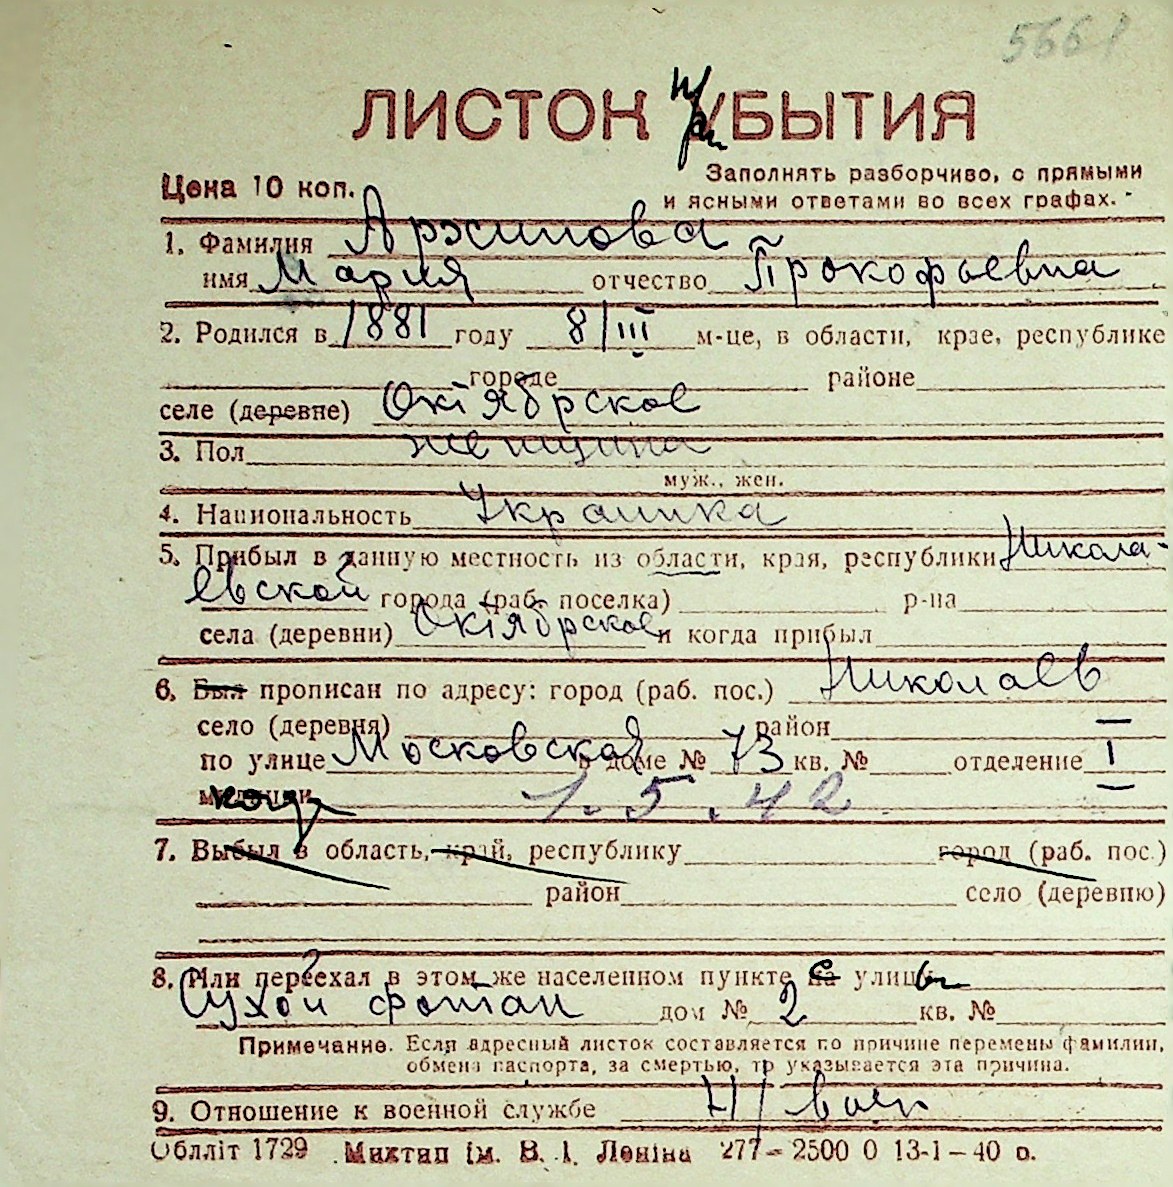 5661
ЛИСТОК УБЫТИЯ
Цена 10 коп.
Заполнять разборчиво, с прямыми
и ясными ответами во всех графах.
1. Фамилия Архипова
имя Мария отчество Прокофьевна
2. Родился в 1881 году 8/III м-це, в области, крае, республике
городе районе
селе (деревне) Октябрское
3. Пол женщина
муж., жен.
4. Национальность Украинка
5. Прибыл в данную местность из области, края, республики Никола-
евской города (раб. поселка) р-на
села (деревни) Октябрское и когда прибыл
6. Был прописан по адресу: город (раб. пос.) Николаев
село (деревня) район
по улице Московской в доме № 73 кв. № отделение I
милиции когда 1.5.42
7. Выбыл в область, край, республику город (раб. пос.)
район село (деревню)
8. Или переехал в этом же населенном пункте на с улицы
Сухой фонтан дом № 2 кв. №
Примечание. Если адресный листок составляется по причине перемены фамилии,
обмена паспорта, за смертью, то указывается эта причина.
9. Отношение к военной службе Н/воен
Облліт 1729 Миктип ім. В. І. Леніна 277–2500 0 13-1–40 р.